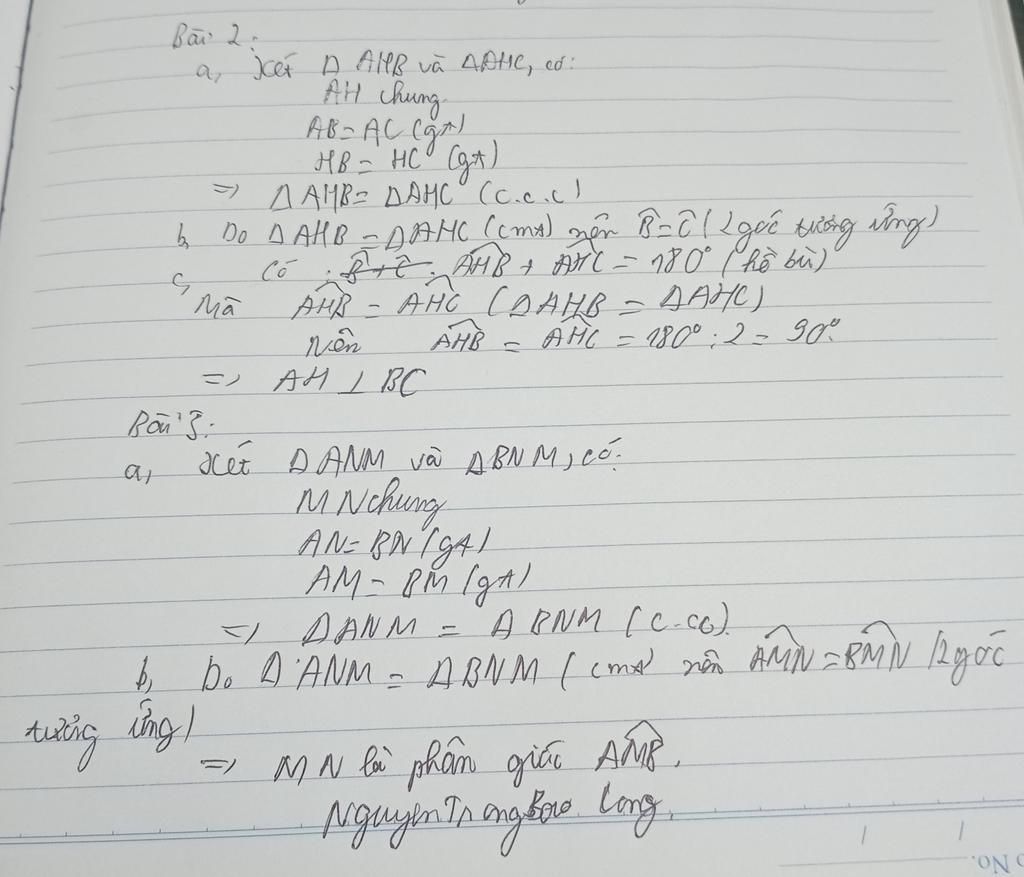 Bài 2:
a, Xét Δ AHB và ΔAHC, có:
AH chung
AB = AC (gt)
HB = HC (gt)
=> Δ AHB = ΔAHC (c.c.c)
b, Do ΔAHB = ΔAHC (cmt) nên B̂ = Ĉ (2 góc tương ứng)
c, Có : B̂ + Ĉ . AHB̂ + AHĈ = 180° (kề bù)
Mà AHB̂ = AHĈ (ΔAHB = ΔAHC)
Nên AHB̂ = AHĈ = 180° : 2 = 90°.
=> AH ⊥ BC
Bài 3:
a, Xét ΔANM và ΔBNM, có:
MN chung
AN = BN (gt)
AM = BM (gt)
=> ΔANM = ΔBNM (c.cc).
b, Do ΔANM = ΔBNM (cmt) nên AMN̂ = BMN̂ (2 góc
tương ứng)
=> MN là phân giác AMB̂.
Nguyen Trang Bao Long.
No.